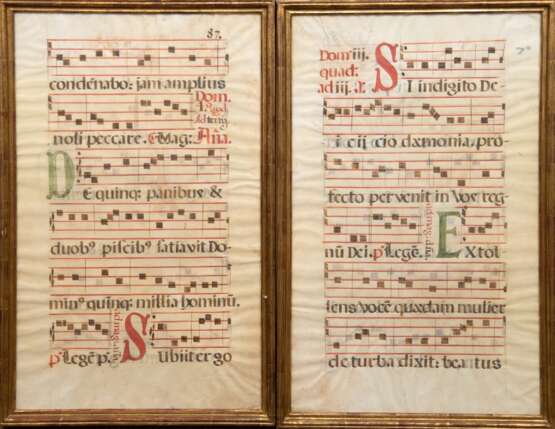 87.
condēnabo: jam amplius
Dom.
noli peccare. Mag: Aña.
De quinq: panibus &
duobꝰ piscibꝰ satiavit Do-
minꝰ quinq: millia hominū.
pˢ Legē pˢ. Subiit ergo
Domᶜ iij.
quad:
ad iij. Si in digito De-
i eij cio dæmonia, pro-
fecto per venit in vos reg-
nū Dei. pˢ Legē. Extol
lens vocē quædam mulier
de turba dixit: beatus